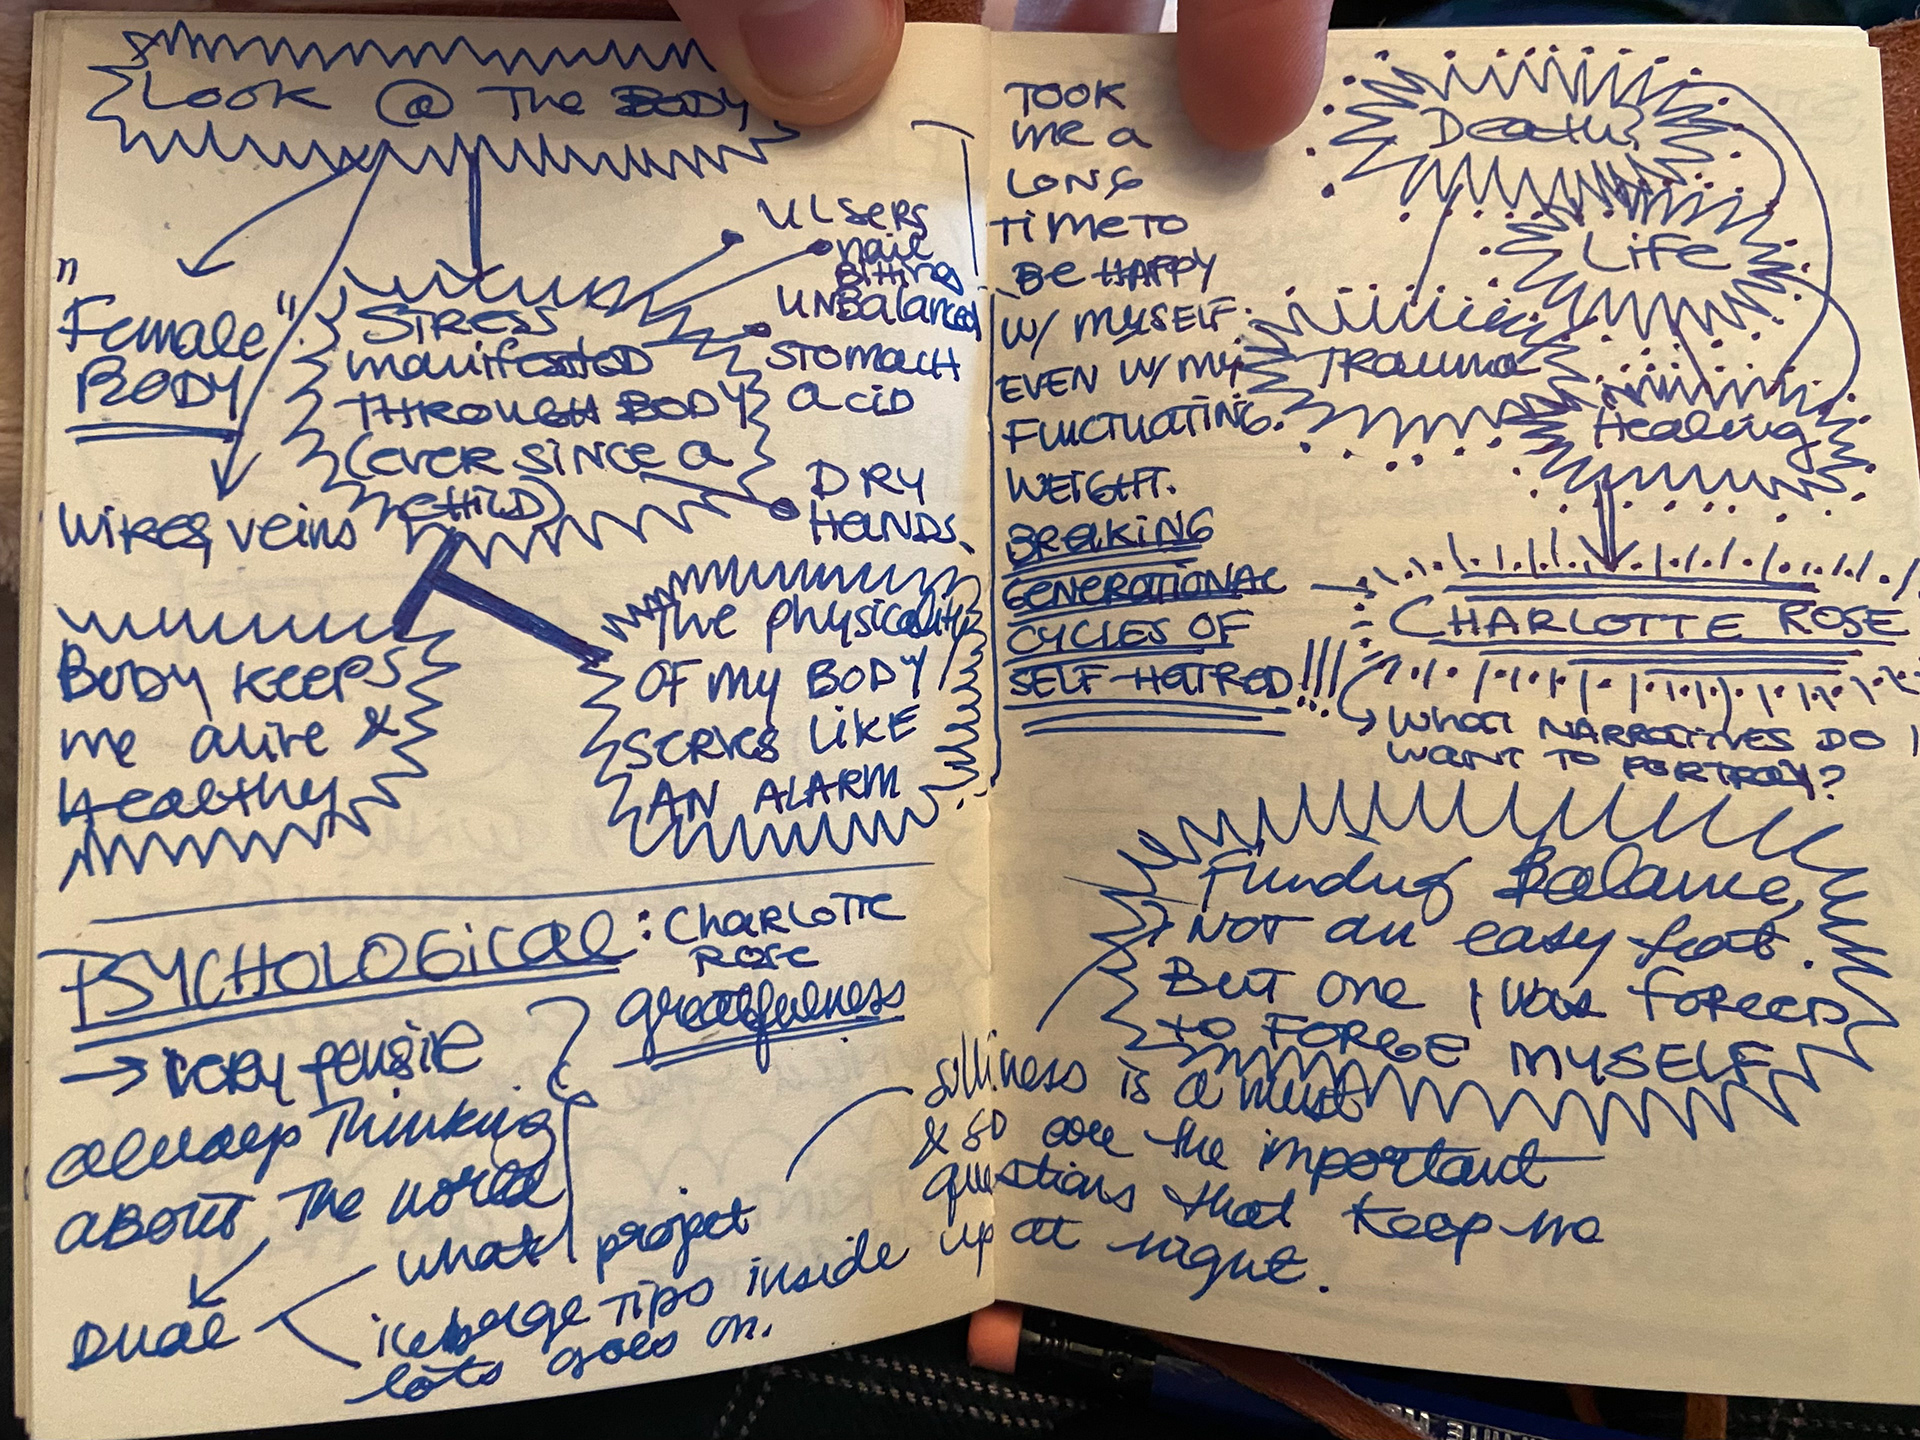 Look @ The BODY
"Female"
BODY
Wires, veins
Stress
manifested
THROUGH BODY
(ever since a
child)
Ulsers
nail
Bitting
UNBalanced
STOMACH
acid
DRY
HANDS
Body keeps
me alive &
Healthy
The physicality
OF my BODY
Serves LIKE
AN ALARM
PSYCHOLOGICAL: CHARLOTTE
ROSE
greatfulness
→ very pensive
always Thinking
ABOUT The world
Dual
what I project
iceberge Tips inside
lots goes on.
TOOK
me a
LONG
TIME TO
Be HAPPY
W/ MYSELF.
EVEN W/ MY
FLUCTUATING
WEIGHT.
BREAKING
GENERATIONAL
CYCLES OF
SELF-HATRED!!!
Death
Life
Trauma
Healing
CHARLOTTE ROSE
WHAT NARRATIVES DO I
WANT TO PORTRAY?
Finding Balance,
NOT an easy feat.
But one I was forced
to FORGE MYSELF
silliness is a must
& so are the important
questions that keep me
up at night.